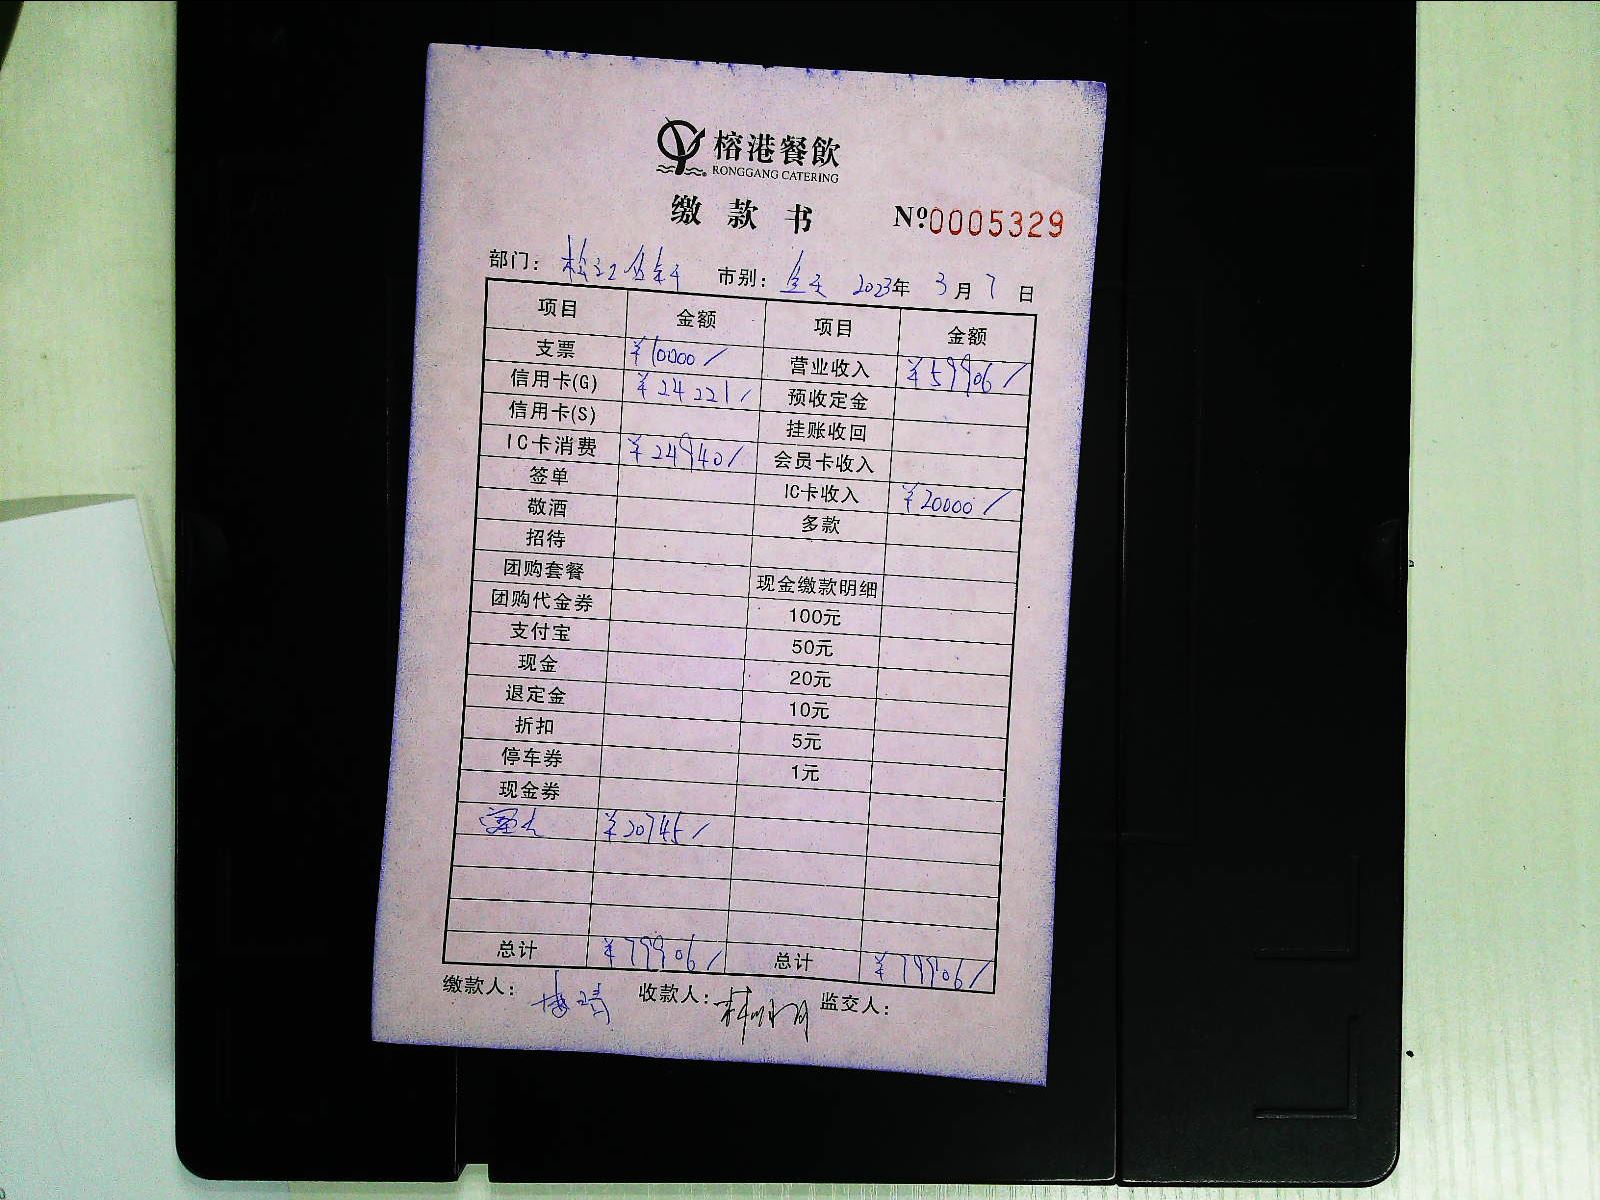 榕港餐飲
RONGGANG CATERING
缴款书 Nº0005329
部门： 松江 市别： 全天 2023年 3月7日
项目 金额 项目 金额
支票 ¥10000/ 营业收入 ¥59906/
信用卡(G) ¥24221/ 预收定金
信用卡(S) 挂账收回
IC卡消费 ¥24940/ 会员卡收入
签单 IC卡收入 ¥20000/
敬酒 多款
招待
团购套餐 现金缴款明细
团购代金券 100元
支付宝 50元
现金 20元
退定金 10元
折扣 5元
停车券 1元
现金券
¥20745/
总计 ¥79906/ 总计 ¥79906/
缴款人： 收款人： 监交人：